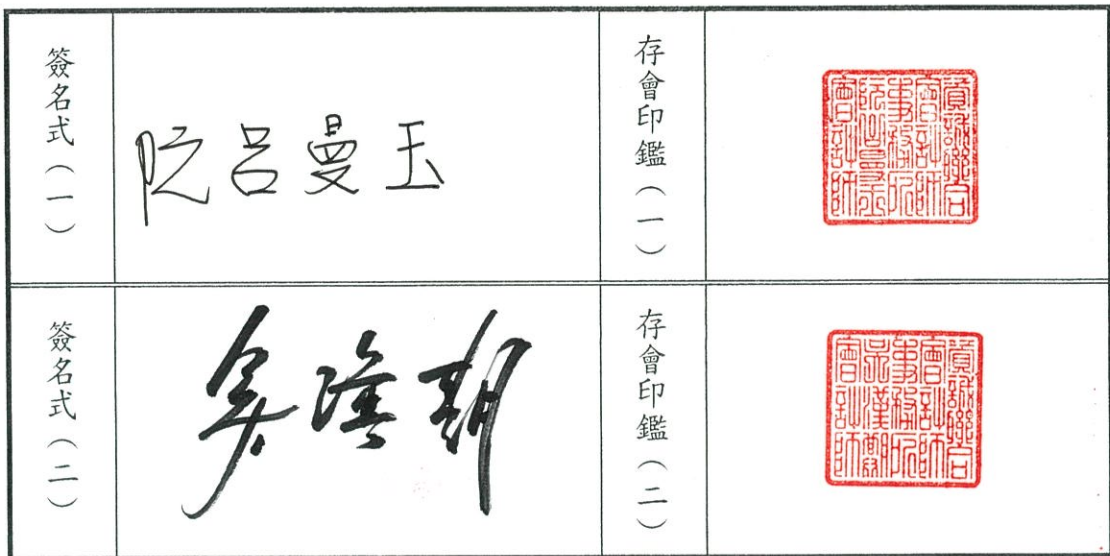 簽名式（一）
阮呂曼玉
存會印鑑（一）
資誠聯合
會計師
事務所
阮呂曼玉
會計師
簽名式（二）
吳漢期
存會印鑑（二）
資誠聯合
會計師
事務所
吳漢期
會計師